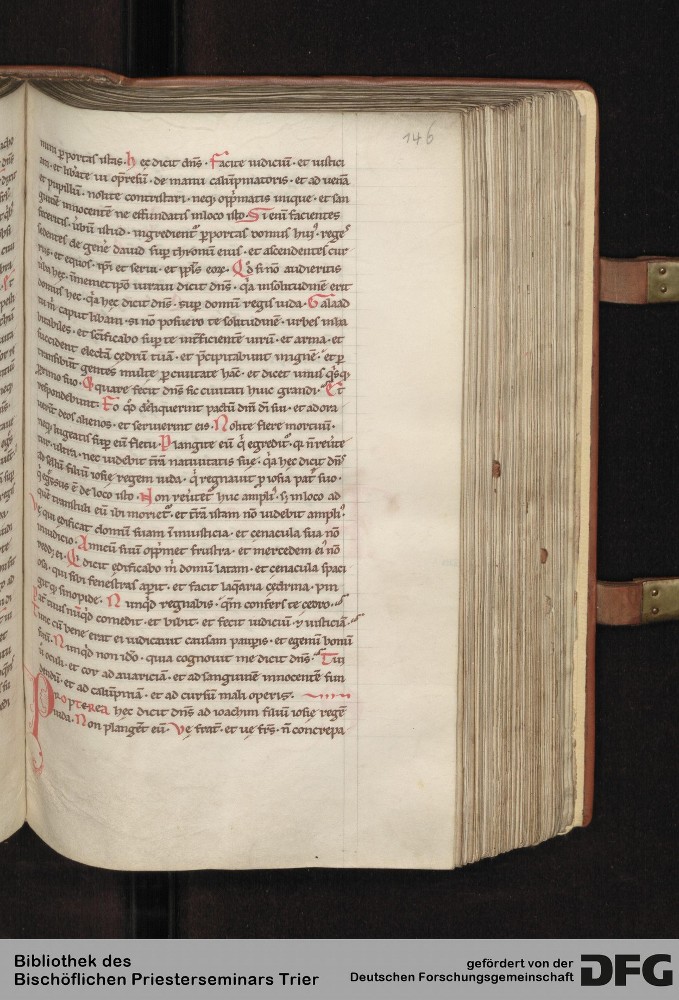 146
mini p portas istas. hęc dicit dns. Facite iudiciū. et iustici
am. et libate ui op̄ressū. de manu calūpniatoris. et ad uenā
et pupillū. nolite contristari. neq; opp̄matis inique. et san
guinē innocentē ne effundatis in loco isto. Si enī facientes
feceritis. ūbū istud. ingredient᷑ p portas domus hui᷒. rege᷒
sedentes de gene dauid sup thronū eius. et ascendentes cur
rus. et equos. ip̄i et serui. et pp̄ls eoꝝ. Qd si nō audieritis
ūba hęc. in memetip̄o iuraui dicit dns. q̄a in solitudinē erit
domus hec. q̄a hęc dicit dns. sup domū regis iuda. Galaad
tu m̄ caput libani. si nō posuero te solitudinē. urbes inha
bitabiles. et scīficabo sup te int̄ficientē uirū. et arma. et
succident electā cedrū tuā. et p̄cipitabunt in ignē. et p
transibūt gentes multe p ciuitatē hāc. et dicet unus q̄sq;
p̄ximo suo. Quare fecit dns sic ciuitati huic grandi. Et
respondebunt. Eo qd dereliquerint pactū dni di sui. et adora
uerīt deos alienos. et seruierint eis. Nolite flere mortuū.
neq; lugeatis sup eū fletu. Plangite eū q̄ egredit᷑. q̄ n̄ reūte
tur ultra. nec uidebit t̄rā natiuitatis sue. q̄a hęc dicit dns
ad sellū filiū iosie regem iuda. q̄ regnauit p iosia pat᷑ suo.
q̄ eg̅ssus ē de loco isto. Non reūtet᷑ huc ampli᷒. s; in loco ad
quē transtuli eū ibi moriet᷑. et t̄rā istam nō uidebit ampli᷒.
Vę qui edificat domū suam in iniusticia. et cenacula sua nō
in iudicio. Amicū suū opp̄met frustra. et mercedem ei᷒ nō
reddet ei. Qi dicit edificabo m̄ domū latam. et cenacula spaci
osa. qui sibi fenestras apit. et facit laq̄aria cędrina. pin
git q; sinopide. Nunqd regnabis. qm̄ confers te cedro.
Pat᷑ tuus nūqd comedit. et bibit. et fecit iudiciū. ⁊ iusticiā
tunc cū bene erat ei iudicauit causam paupis. et egenū bonū
suū. Nunqd non idō. quia cognouit me dicit dns. Tui
ū oculi. et cor ad auariciā. et ad sanguinē innocentē fun
dendū. et ad calūpniā. et ad cursū mali operis.
Propterea hęc dicit dns ad ioachim filiū iosie regē
iuda. Non plangēt eū. Vę frat᷑. et uę frs. n̄ concrepa
Bibliothek des
Bischöflichen Priesterseminars Trier
gefördert von der
Deutschen Forschungsgemeinschaft
DFG